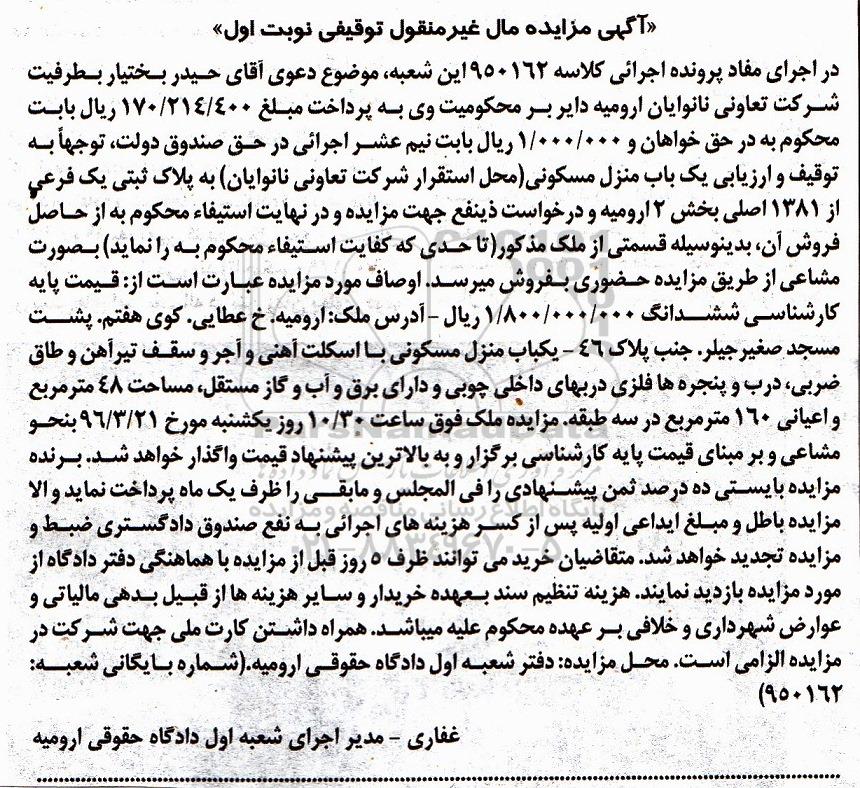 «آگهی مزایده مال غیرمنقول توقیفی نوبت اول»
در اجرای مفاد پرونده اجرائی کلاسه ۹۵۰۱۶۲ این شعبه، موضوع دعوی آقای حیدر بختیار بطرفیت
شرکت تعاونی نانوایان ارومیه دایر بر محکومیت وی به پرداخت مبلغ ۱۷۰/۲۱٤/٤۰۰ ریال بابت
محکوم به در حق خواهان و ۱/۰۰۰/۰۰۰ ریال بابت نیم عشر اجرائی در حق صندوق دولت، توجهاً به
توقیف و ارزیابی یک باب منزل مسکونی(محل استقرار شرکت تعاونی نانوایان) به پلاک ثبتی یک فرعی
از ۱۳۸۱ اصلی بخش ۲ ارومیه و درخواست ذینفع جهت مزایده و در نهایت استیفاء محکوم به از حاصل
فروش آن، بدینوسیله قسمتی از ملک مذکور(تا حدی که کفایت استیفاء محکوم به را نماید) بصورت
مشاعی از طریق مزایده حضوری بفروش میرسد. اوصاف مورد مزایده عبارت است از: قیمت پایه
کارشناسی ششدانگ ۱/۸۰۰/۰۰۰/۰۰۰ ریال - آدرس ملک: ارومیه. خ عطایی. کوی هفتم. پشت
مسجد صغیرجیلر. جنب پلاک ٤٦ - یکباب منزل مسکونی با اسکلت آهنی و آجر و سقف تیرآهن و طاق
ضربی، درب و پنجره ها فلزی دربهای داخلی چوبی و دارای برق و آب و گاز مستقل، مساحت ٤۸ مترمربع
و اعیانی ۱۶۰ مترمربع در سه طبقه. مزایده ملک فوق ساعت ۱۰/۳۰ روز یکشنبه مورخ ۹۶/۳/۲۱ بنحو
مشاعی و بر مبنای قیمت پایه کارشناسی برگزار و به بالاترین پیشنهاد قیمت واگذار خواهد شد. برنده
مزایده بایستی ده درصد ثمن پیشنهادی را فی المجلس و مابقی را ظرف یک ماه پرداخت نماید و الا
مزایده باطل و مبلغ ایداعی اولیه پس از کسر هزینه های اجرائی به نفع صندوق دادگستری ضبط و
مزایده تجدید خواهد شد. متقاضیان خرید می توانند ظرف ۵ روز قبل از مزایده با هماهنگی دفتر دادگاه از
مورد مزایده بازدید نمایند. هزینه تنظیم سند بعهده خریدار و سایر هزینه ها از قبیل بدهی مالیاتی و
عوارض شهرداری و خلافی بر عهده محکوم علیه میباشد. همراه داشتن کارت ملی جهت شرکت در
مزایده الزامی است. محل مزایده: دفتر شعبه اول دادگاه حقوقی ارومیه.(شماره بایگانی شعبه:
۹۵۰۱۶۲)
غفاری - مدیر اجرای شعبه اول دادگاه حقوقی ارومیه
پایگاه اطلاع رسانی مناقصه و مزایده
۰۲۱-۸۸۳٤۹۶۷۰-۵